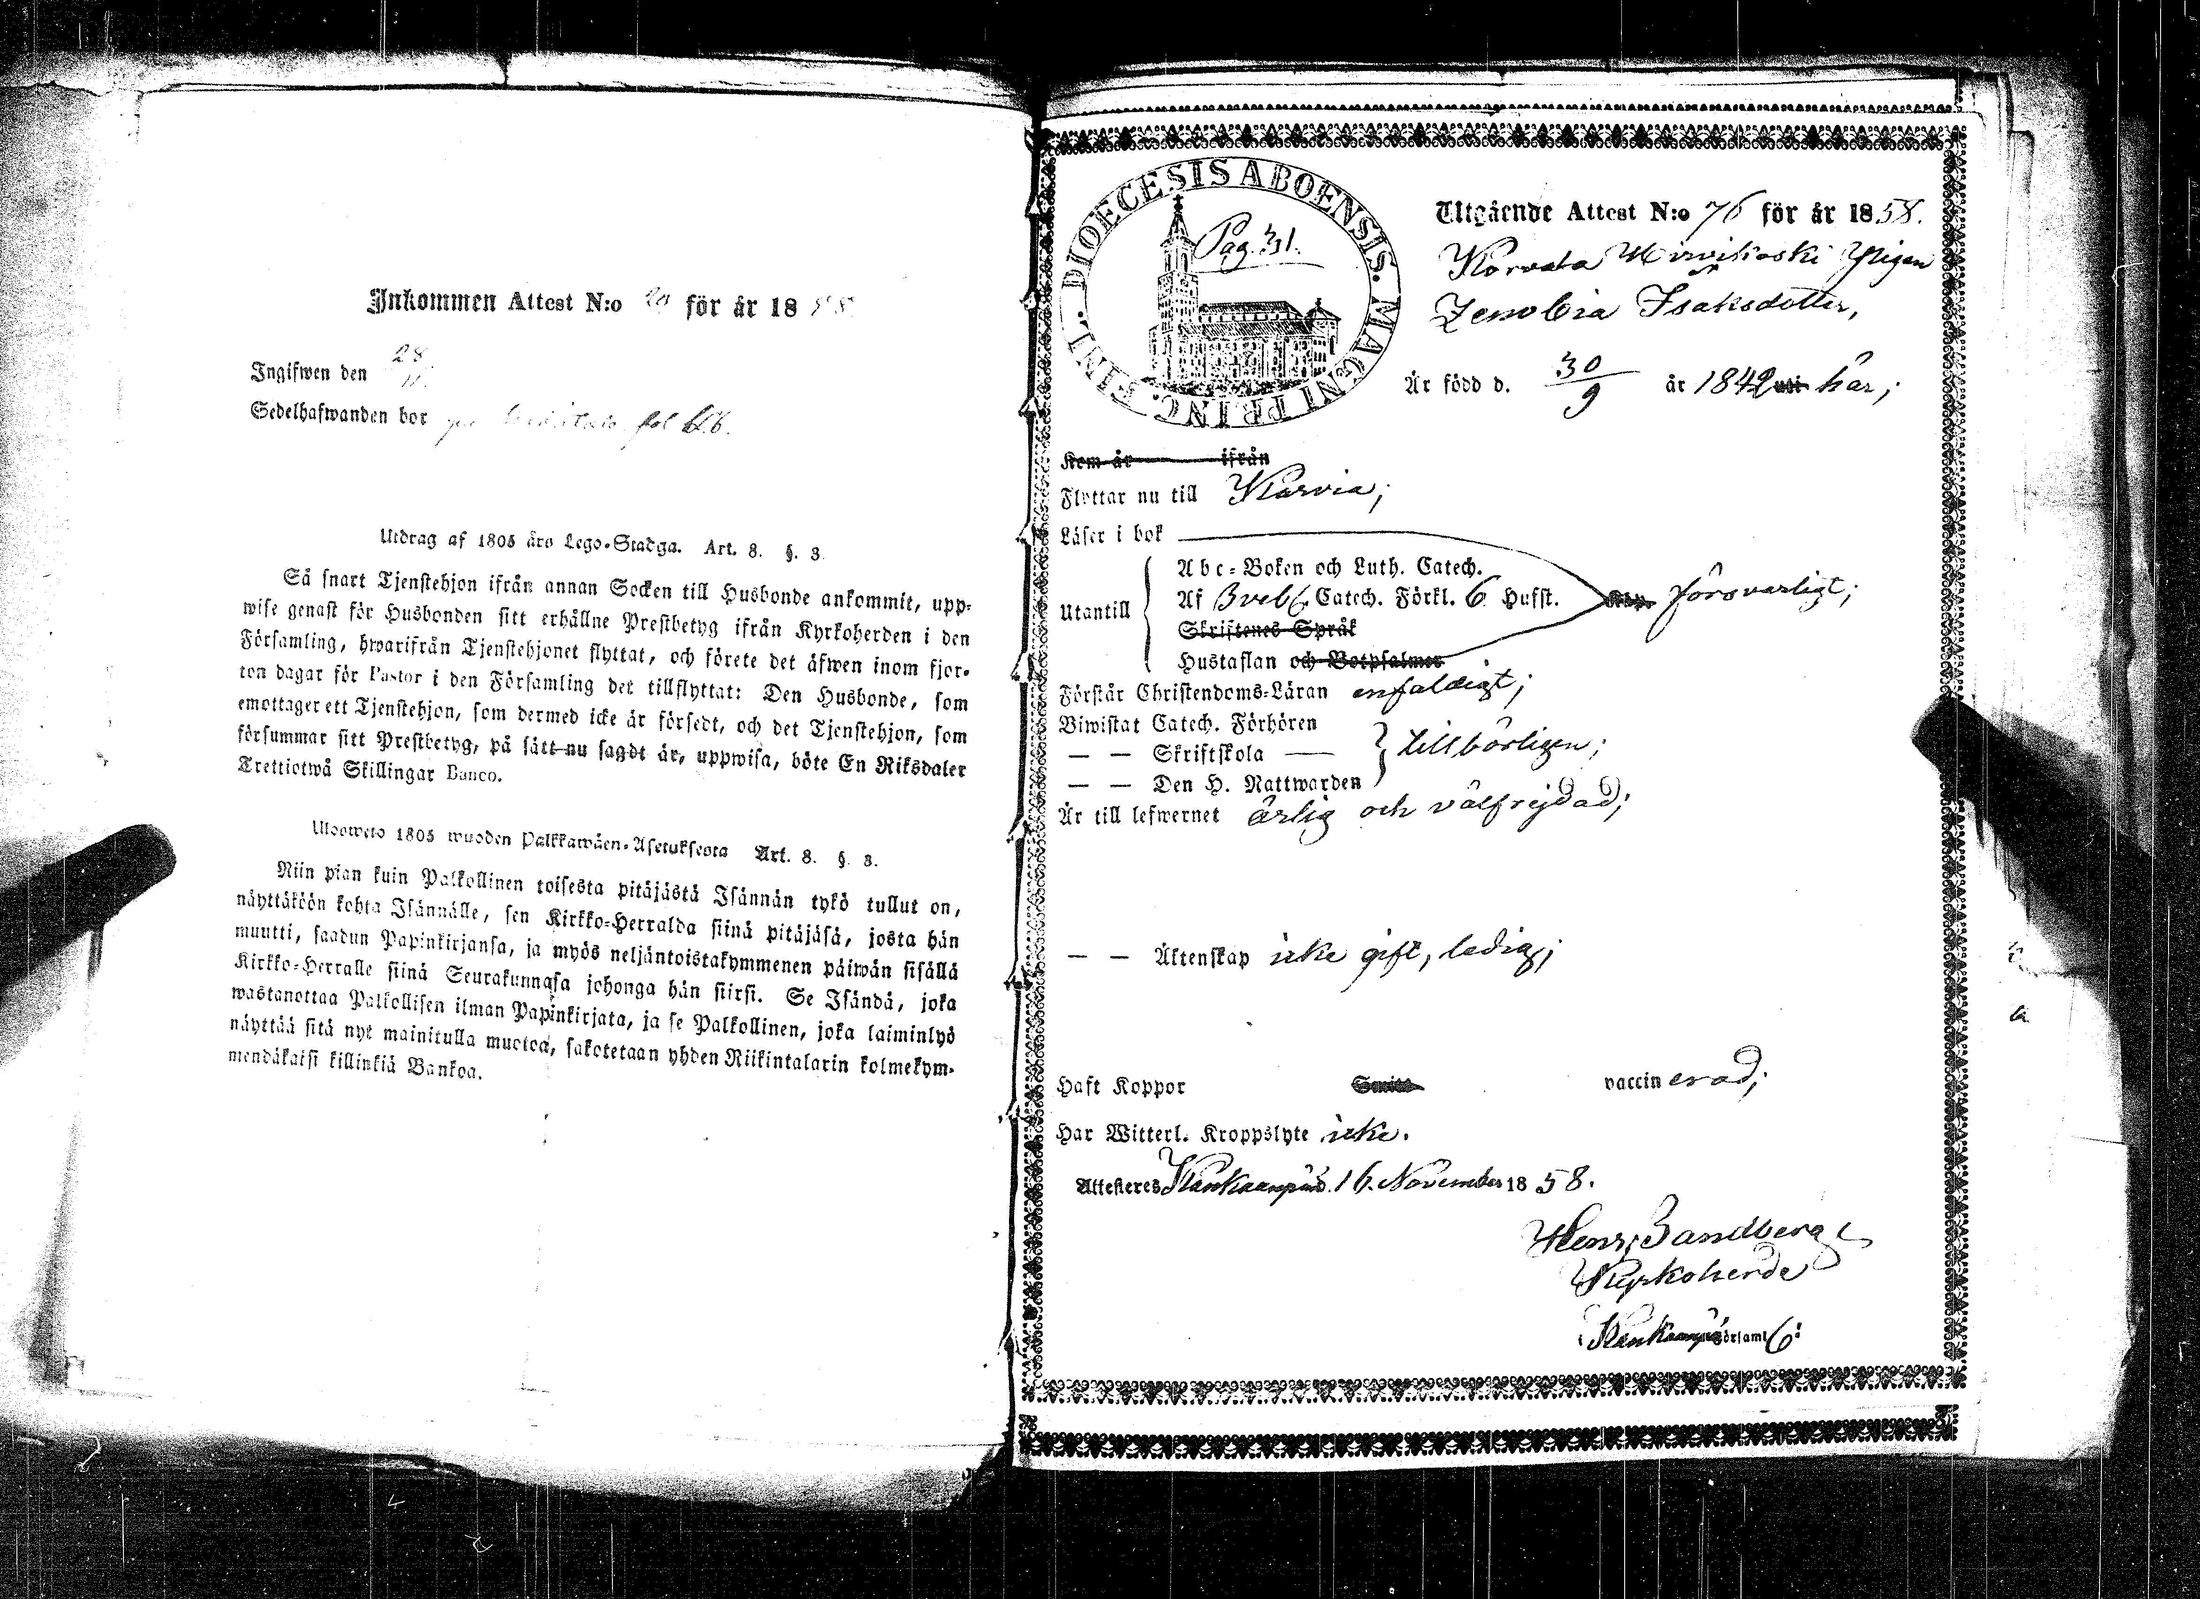 Inkommen Attest N:o 20 för år 1858
Ingifwen den 28/11.
Sedelhafwanden bor fol 66.
Utdrag af 1805 års Lego-Stadga. Art. 8. §. 3.
Så snart Tjenstehjon ifrån annan Socken till Husbonde ankommit, upp-
wise genast för Husbonden sitt erhållne Prestbetyg ifrån Kyrkoherden i den
Församling, hwarifrån Tjenstehjonet flyttat, och förete det äfwen inom fjor-
ton dagar för Pastor i den Församling det tillflyttat: Den Husbonde, som
emottager ett Tjenstehjon, som dermed icke är försedt, och det Tjenstehjon, som
försummar sitt Prestbetyg, på sätt nu sagdt är, uppwisa, böte En Riksdaler
Trettiotwå Skillingar Banco.
Ulosweto 1805 wuoden Palkkawäen-Asetuksesta Art. 8. §. 3.
Niin pian kuin Palkollinen toisesta pitäjästä Isännän tykö tullut on,
näyttäköön kohta Isännälle, sen Kirkko-Herralda siinä pitäjäsä, josta hän
muutti, saadun Papinkirjansa, ja myös neljäntoistakymmenen päiwän sisällä
Kirkko-Herralle siinä Seurakunnasa johonga hän siirsi. Se Isändä, joka
wastanottaa Palkollisen ilman Papinkirjata, ja se Palkollinen, joka laiminlyö
näyttää sitä nyt mainitulla muotoa, sakotetaan yhden Riikintalarin kolmekym-
mendäkaisi killinkiä Bankoa.
DIOECESIS ABOENSIS. MAGNI PRINC. FINL.
Pag. 31.
Utgående Attest N:o 76 för år 1858.
Pigan
Zenobia Isaksdotter,
Är född d. 30/9 år 1842 uti här;
Kom år ifrån
Flyttar nu till Karvia;
Läser i bok
Utantill
Abc-Boken och Luth. Catech.
Af Sveb. Catech. Förkl. 6 Hufst.
Skriftenes Språk
Hustaflan och Botpsalmer
försvarligt;
Förstår Christendoms-Läran enfaldigt;
Biwistat Catech. Förhören
— — Skriftskola —
— — Den H. Nattwarden
tillbörligen;
Är till lefwernet ärlig och välfrejdad;
— — Äktenskap icke gift, ledig;
Haft Koppor Smitt vaccinerad;
Har Witterl. Kroppslyte icke.
Attesteres Kankaanpää. 16. November 1858.
Henr. Sandberg
Kyrkoherde
Kankaanpää församl